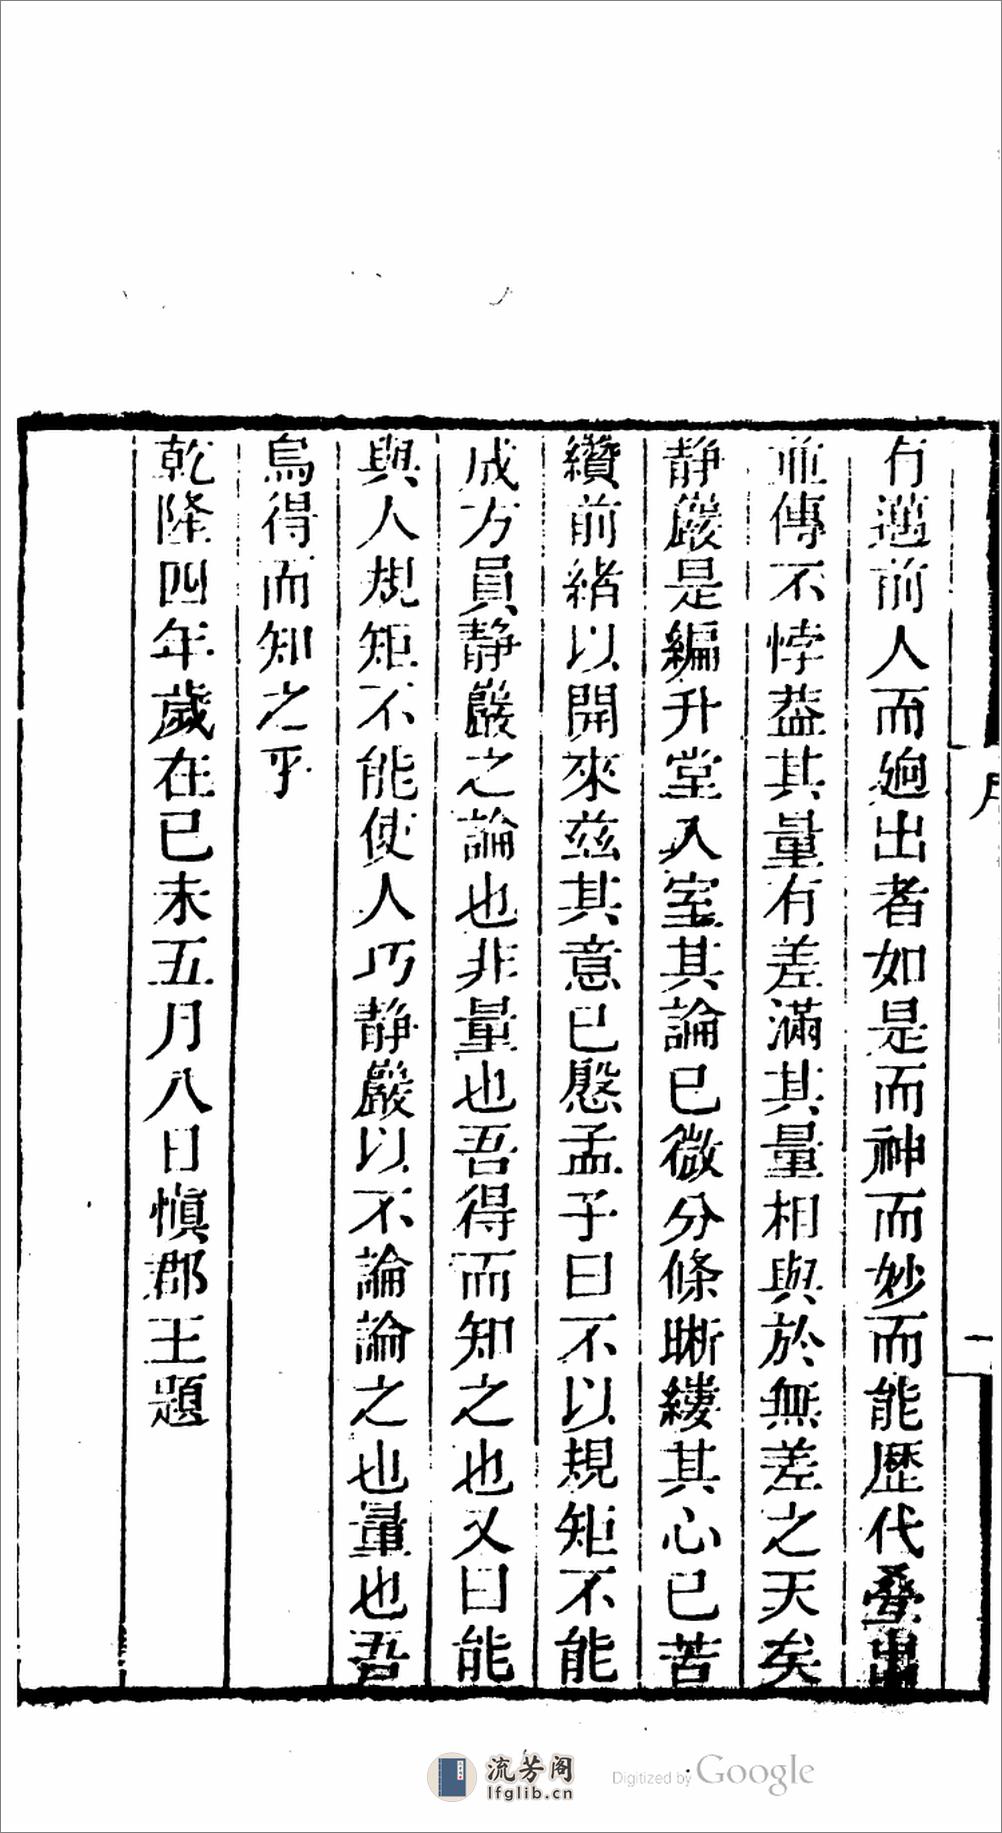 有邁前人而逈出者如是而神而妙而能歷代叠出
並傳不悖葢其量有差滿其量相與於無差之天矣
靜嚴是編升堂入室其論已微分條晣縷其心已苦
纘前緒以開來兹其意已慇孟子曰不以規矩不能
成方員靜嚴之論也非量也吾得而知之也又曰能
與人規矩不能使人巧靜嚴以不論論之也量也吾
烏得而知之乎
乾隆四年歲在已未五月八日慎郡王題
序
一
流芳阁
lfglib.cn
Digitized by Google